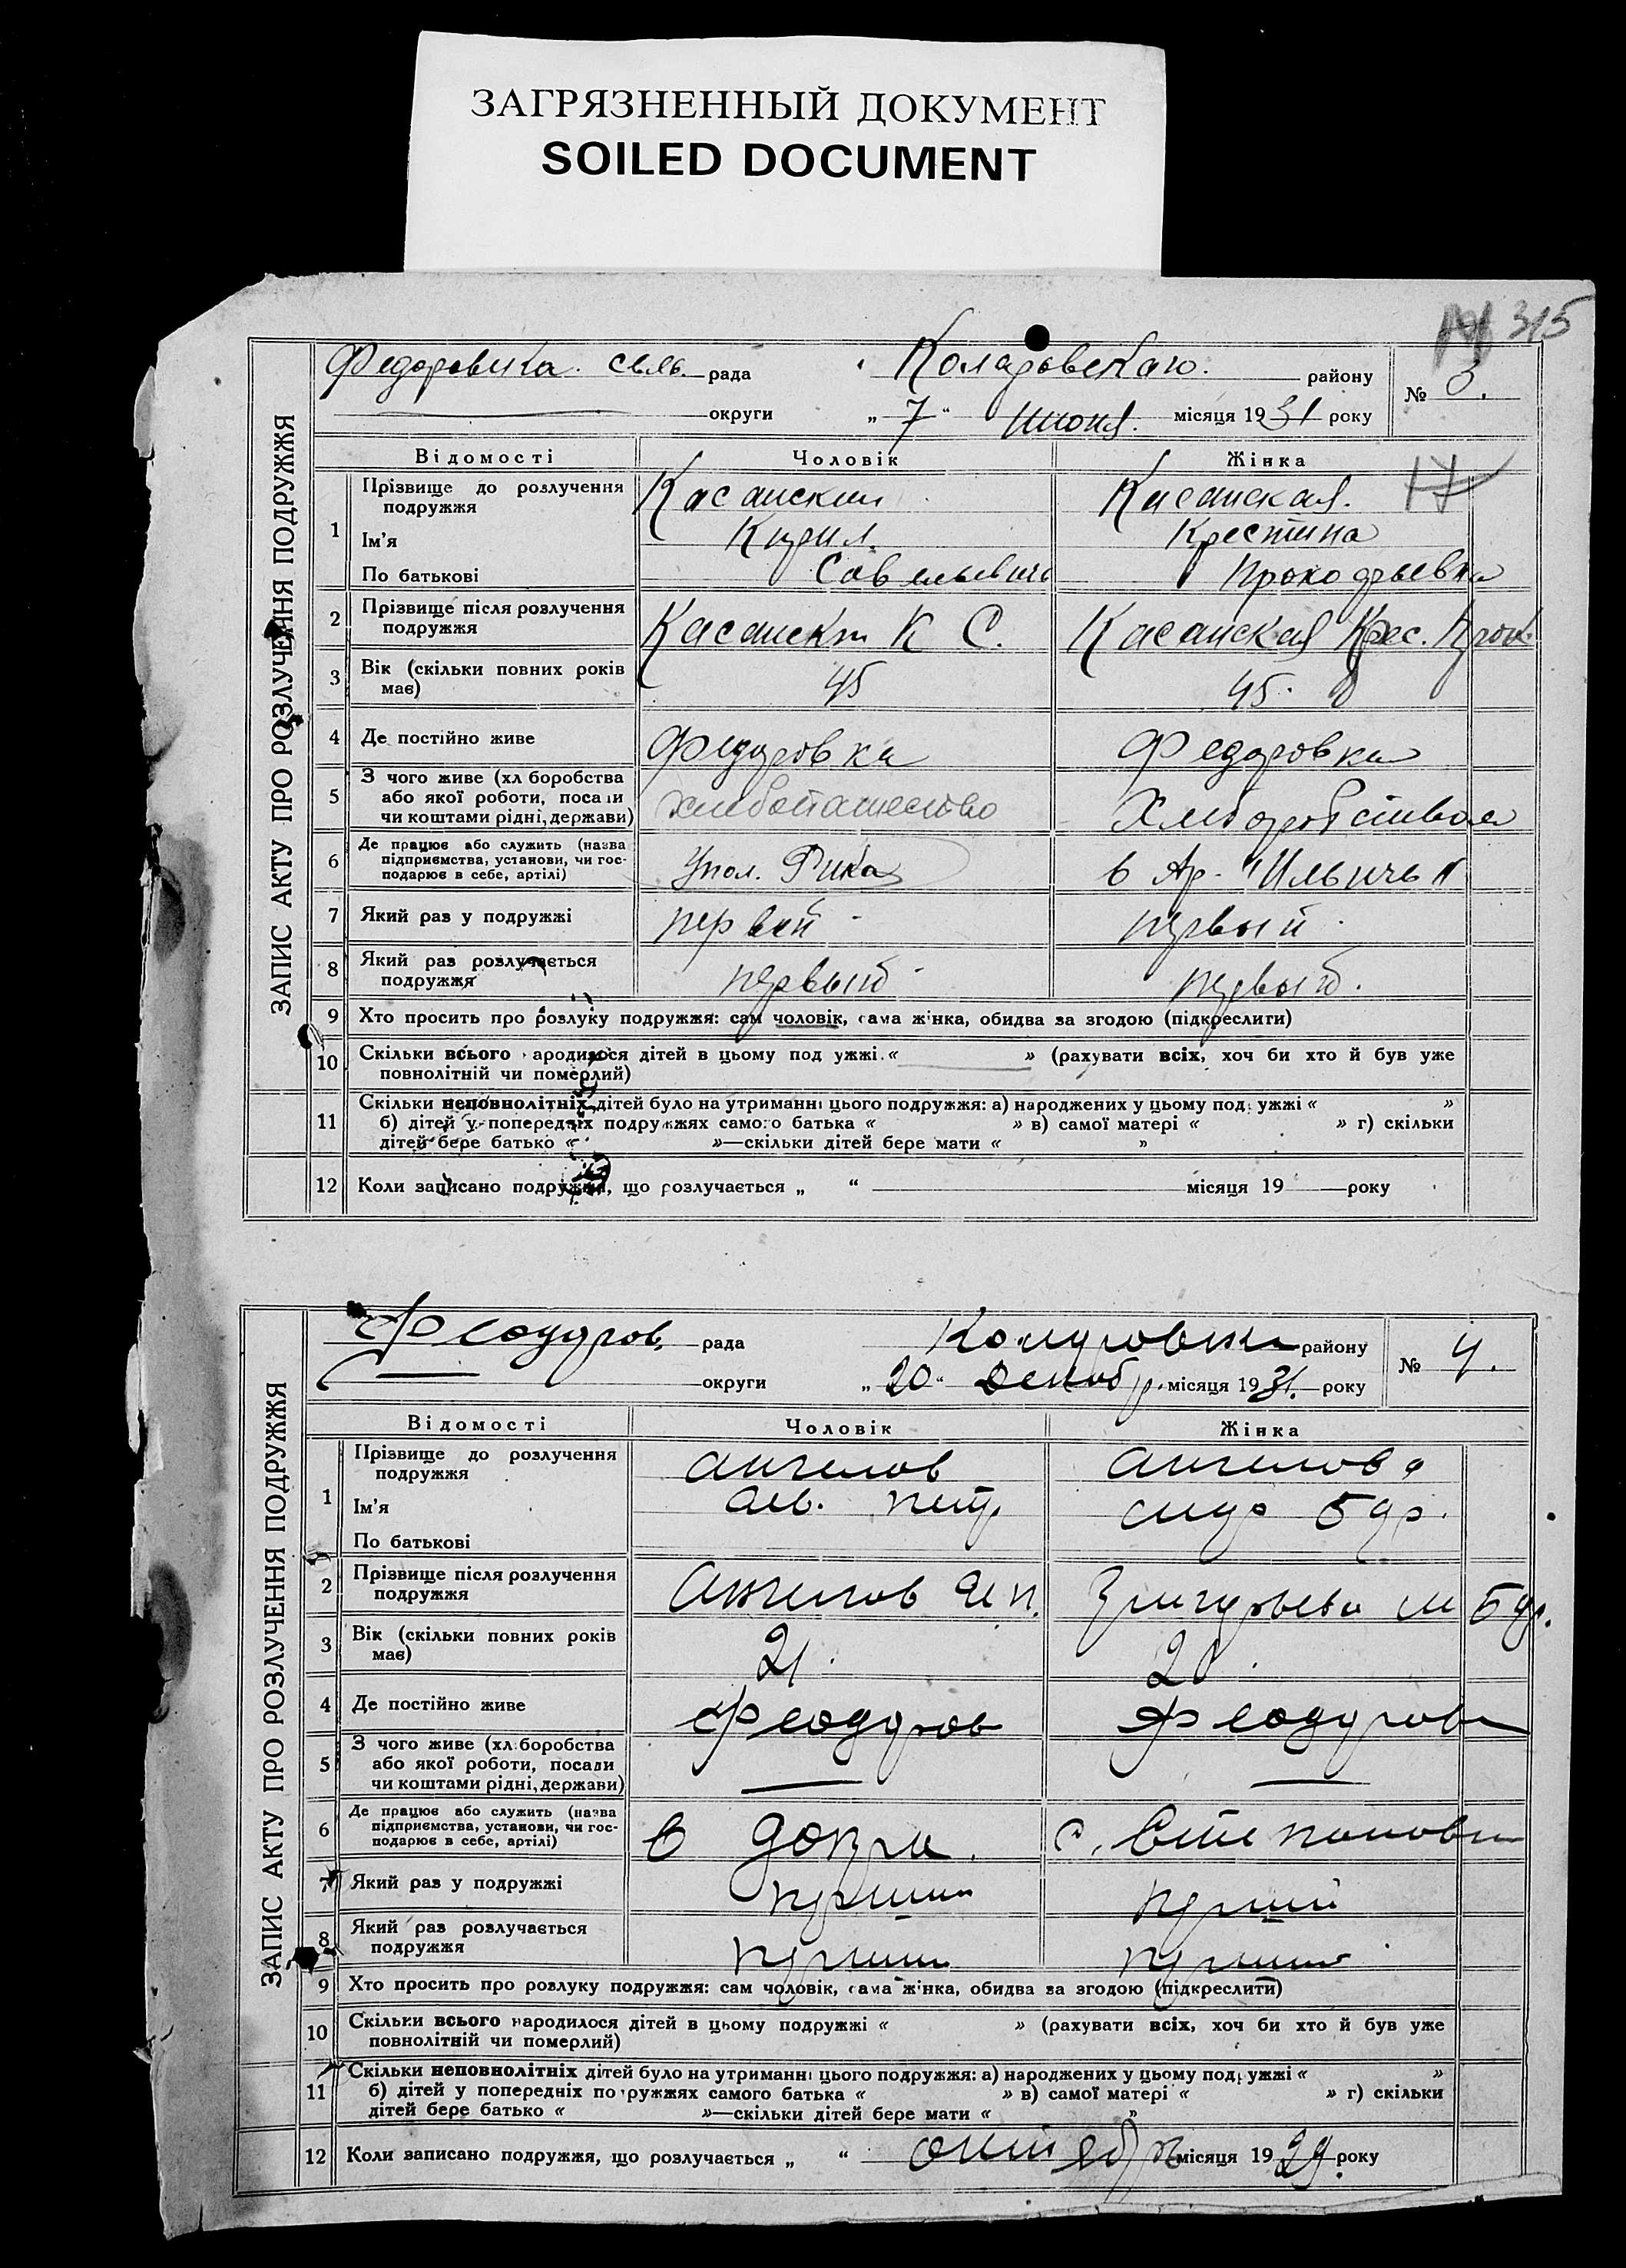 ЗАГРЯЗНЕННЫЙ ДОКУМЕНТ
SOILED DOCUMENT
315
ЗАПИС АКТУ ПРО РОЗЛУЧЕННЯ ПОДРУЖЖЯ
Федоровска. сель. рада Коларовскаго. району № 3.
округи „ 7 “ июня. місяця 1931 року
Відомості Чоловік Жінка
17
1 Прізвище до розлучення подружжя Касаиския Касаиская.
Ім'я Кирил. Крестина
По батькові Савельевичь Прокофьевна
2 Прізвище після розлучення подружжя К С. Касаиская Крес. Прок.
3 Вік (скільки повних років має) 45 45.
4 Де постійно живе Федоровка Федоровка
5 З чого живе (хл боробства або якої роботи, посади чи коштами рідні, держави) хлебопашество
6 Де працює або служить (назва підприємства, установи, чи господарює в себе, артілі) Упол. Рика в Ар. "Ильичь"
7 Який раз у подружжі первый первый
8 Який раз розлучається подружжя первый первый.
9 Хто просить про розлуку подружжя: сам чоловік, сама жінка, обидва за згодою (підкреслити)
10 Скільки всього народилося дітей в цьому подружжі « » (рахувати всіх, хоч би хто й був уже
повнолітній чи померлий)
11 Скільки неповнолітніх дітей було на утриманні цього подружжя: а) народжених у цьому подружжі « »
б) дітей у попередніх подружжях самого батька « » в) самої матері « » г) скільки
дітей бере батько « »—скільки дітей бере мати « »
12 Коли записано подружжя, що розлучається „ “ місяця 19 року
ЗАПИС АКТУ ПРО РОЗЛУЧЕННЯ ПОДРУЖЖЯ
Феодоров. рада району № 4.
округи „ 20 “ Декабр. місяця 1931. року
Відомості Чоловік Жінка
1 Прізвище до розлучення подружжя Ангелов Ангелова
Ім'я Петр
По батькові
2 Прізвище після розлучення подружжя Ангелов
3 Вік (скільки повних років має) 21. 20.
4 Де постійно живе Феодоров Феодоровк
5 З чого живе (хл боробства або якої роботи, посади чи коштами рідні, держави)
6 Де працює або служить (назва підприємства, установи, чи господарює в себе, артілі) в допра. с. Степановк
7 Який раз у подружжі перший перший
8 Який раз розлучається подружжя перший перший
9 Хто просить про розлуку подружжя: сам чоловік, сама жінка, обидва за згодою (підкреслити)
10 Скільки всього народилося дітей в цьому подружжі « » (рахувати всіх, хоч би хто й був уже
повнолітній чи померлий)
11 Скільки неповнолітніх дітей було на утриманні цього подружжя: а) народжених у цьому подружжі « »
б) дітей у попередніх подружжях самого батька « » в) самої матері « » г) скільки
дітей бере батько « »—скільки дітей бере мати « »
12 Коли записано подружжя, що розлучається „ “ місяця 1929 року